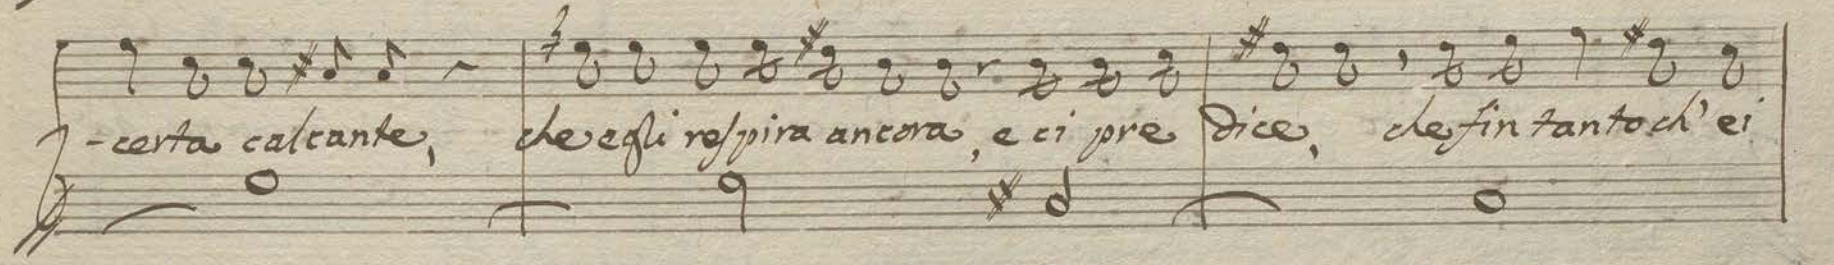 -certa calcante, che egli respira ancora, e ci pre dice, che fin tanto ch' ei